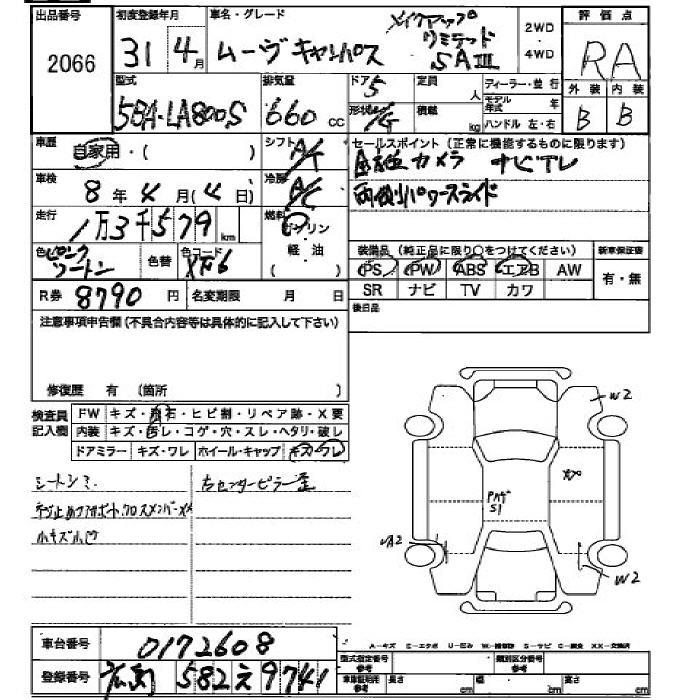 出品番号 2066
初度登録年月 31 4月
車名・グレード ムーヴキャンバス メイクアップ リミテッド SAⅢ
2WD
4WD
評価点 RA
型式 5BA-LA800S
排気量 660 cc
ドア 5
形状
定員 人
積載 kg
ディーラー・並行
モデル年式 年
ハンドル 左・右
外装 B
内装 B
車歴 自家用・( )
シフト A/T
セールスポイント(正常に機能するものに限ります)
全方位カメラ ナビTV
両側パワースライド
車検 8年4月(4日)
冷房 A/C
走行 1万3千579 km
燃料 ガソリン
軽油
色 ピンク ツートン
色替
色コード XF6
装備品(純正品に限り○をつけてください)
新車保証書
PS PW ABS エアB AW
有・無
SR ナビ TV カワ
R券 8790 円
名変期限 月 日
後日品
注意事項申告欄(不具合内容等は具体的に記入して下さい)
修復歴 有 (箇所 )
検査員記入欄
FW キズ・飛石・ヒビ割・リペア跡・X要
内装 キズ・汚レ・コゲ・穴・スレ・ヘタリ・破レ
ドアミラー キズ・ワレ ホイール・キャップ キズ・ワレ
シートシミ
右センターピラー歪
ネジ止めラジサポート、クロスメンバーXX
小キズ小凹
W2
XX
Pハゲ
S1
A2
W2
車台番号 0172608
A-キズ E-エクボ U-凹み W-補修跡 S-サビ C-腐食 XX-交換済
登録番号 582え9741
型式指定番号 参考
類別区分番号 参考
車庫証明用 参考
長さ cm
幅 cm
高さ cm